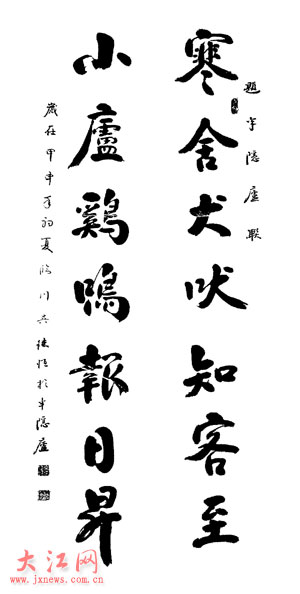 題半隱廬聯
寒舍犬吠知客至
小廬鷄鳴報日昇
歲在甲申年初夏臨川吴於半隱廬
大江网
www.jxnews.com.cn